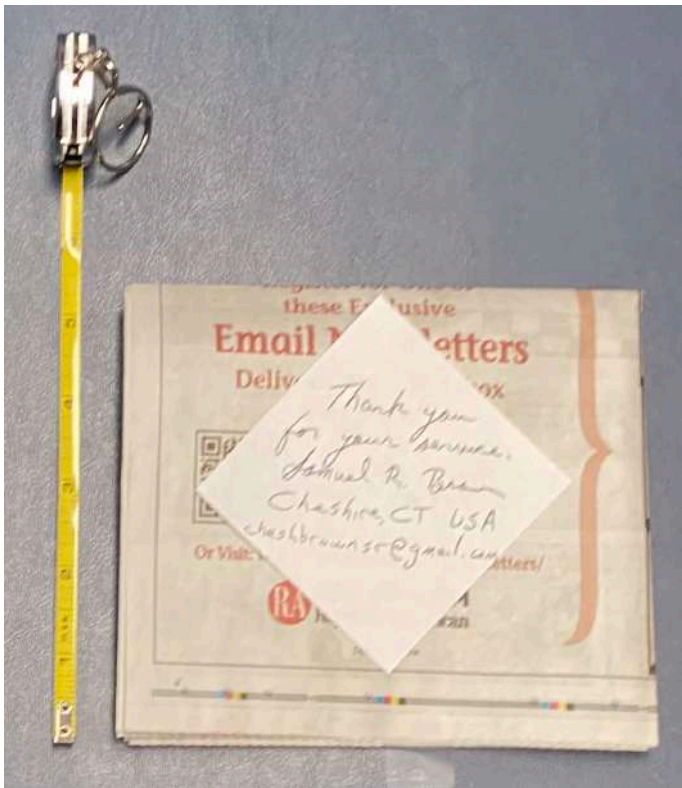 these Ex lusive
Email N letters
Deliv ox
Thank you
for your service.
Samuel R. Brown
Cheshire, CT USA
cheshbrownsr@gmail.com
Or Visit: etters/
RA
5
4
3
2
1